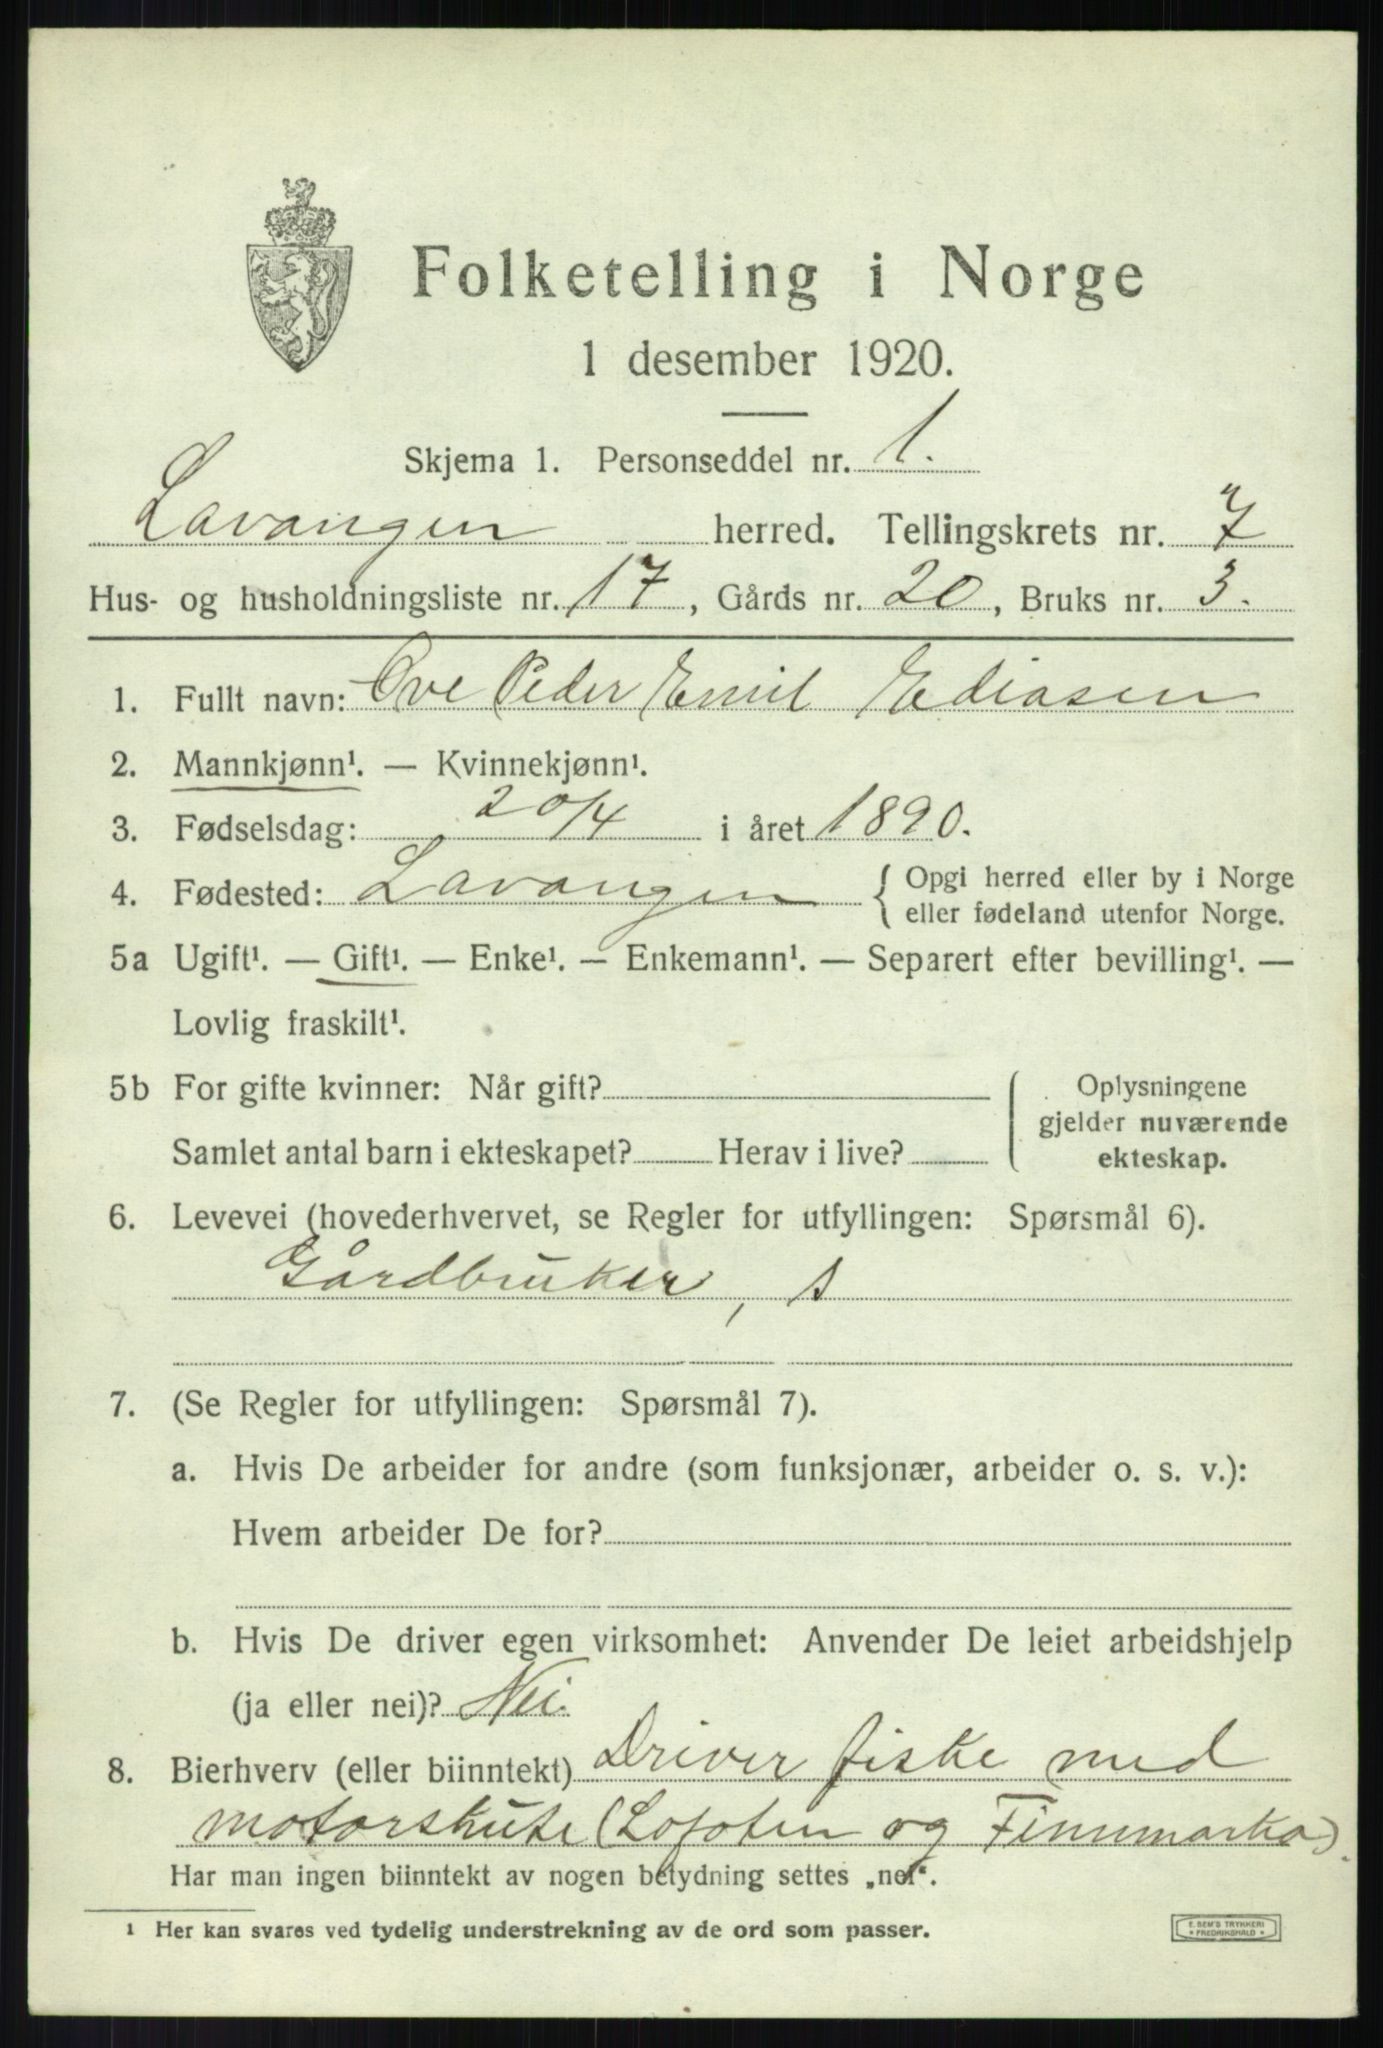 Folketelling i Norge
1 desember 1920.
Skjema 1. Personseddel nr. 1.
Lavangen herred. Tellingskrets nr. 7
Hus- og husholdningsliste nr. 17, Gårds nr. 20, Bruks nr. 3.
1. Fullt navn: Ove Peder Emil Ediasen
2. Mannkjønn¹. — Kvinnekjønn¹.
3. Fødselsdag: 20/4 i året 1890.
4. Fødested: Lavangen { Opgi herred eller by i Norge
eller fødeland utenfor Norge.
5a Ugift¹. — Gift¹. — Enke¹. — Enkemann¹. — Separert efter bevilling¹. —
Lovlig fraskilt¹.
5b For gifte kvinner: Når gift?
Samlet antal barn i ekteskapet? Herav i live?
Oplysningene
gjelder nuværende
ekteskap.
6. Levevei (hovederhvervet, se Regler for utfyllingen: Spørsmål 6).
Gårdbruker, s
7. (Se Regler for utfyllingen: Spørsmål 7).
a. Hvis De arbeider for andre (som funksjonær, arbeider o. s. v.):
Hvem arbeider De for?
b. Hvis De driver egen virksomhet: Anvender De leiet arbeidshjelp
(ja eller nei)? Nei.
8. Bierhverv (eller biinntekt) Driver fiske med
motorskute (Lofoten og Finnmarka).
Har man ingen biinntekt av nogen betydning settes „nei“.
¹ Her kan svares ved tydelig understrekning av de ord som passer.
E. SEM'S TRYKKERI
* FREDRIKSHALD *